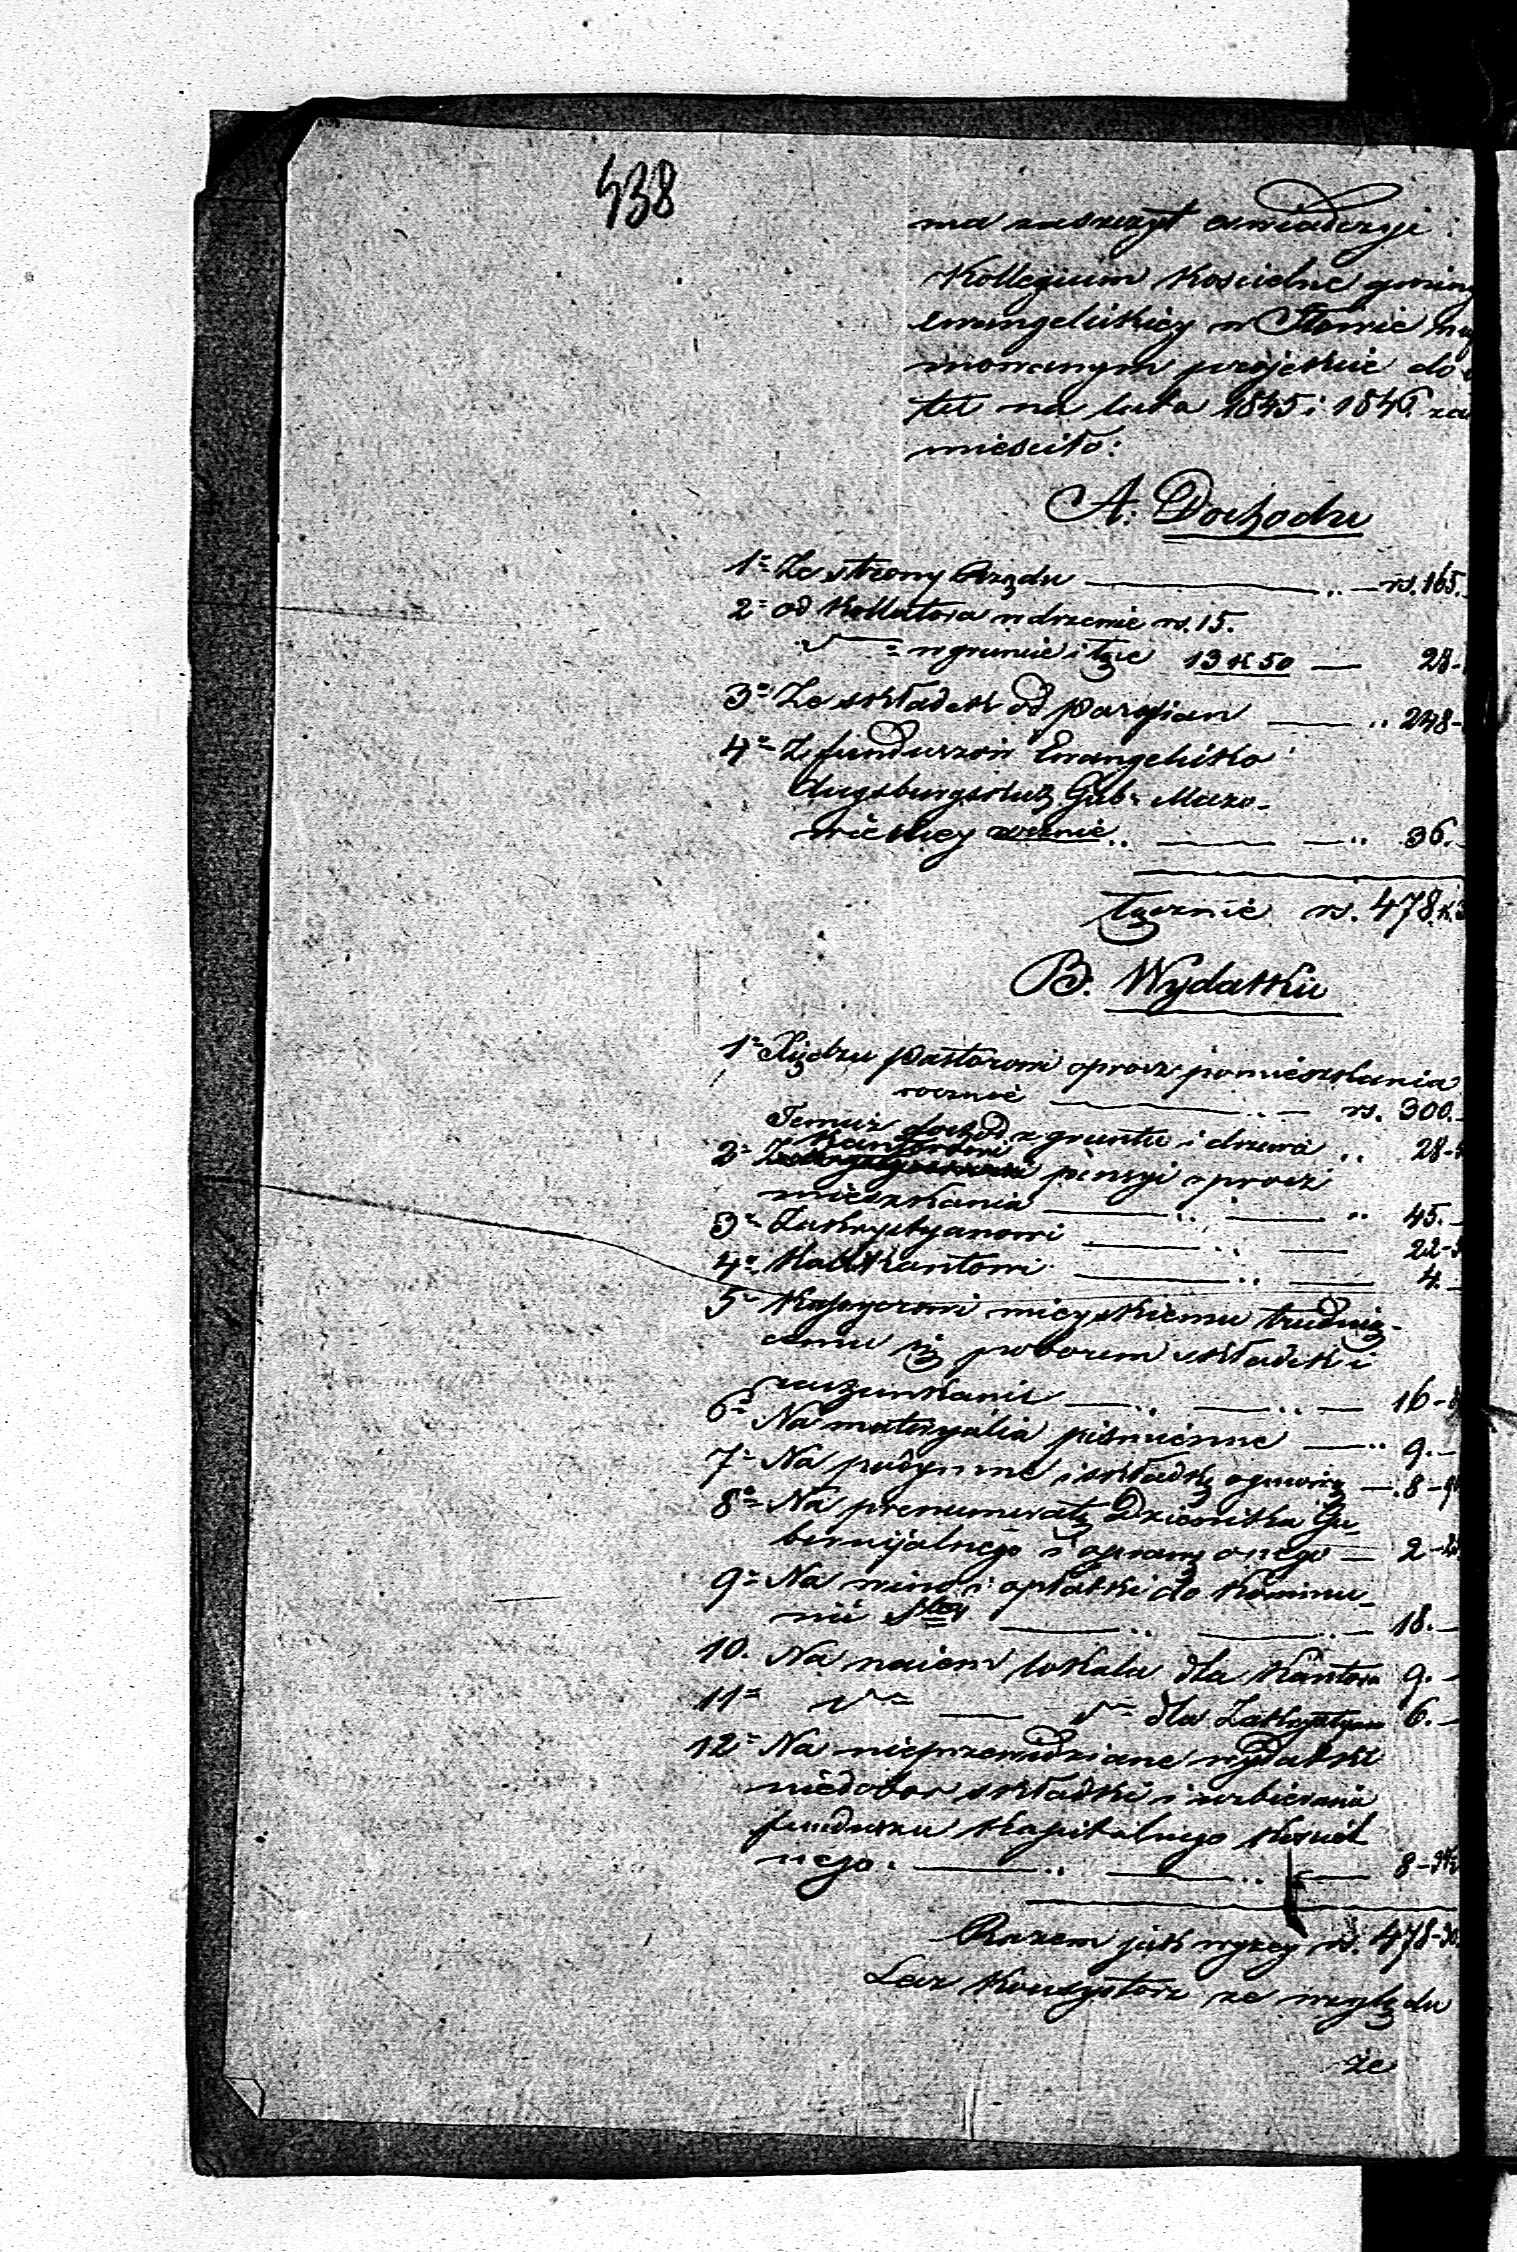 438
ma zaszczyt oświadczyć:
Kollegium Kościelne gminy
ewangelickiey w Iłowie wy
mowanym projekcie do
tu na lata 1845 i 1846 za
mieściło:
A. Dochodu
1° Ze strony Rządu — rs. 165.
2° od Kollatora w drzewie rs. 15.
w gruncie i łące 13 k 50 — 28-
3° Ze składek od parafian — 248-
4° Z funduszów Ewangelicko
Augsburgskich Gub. Mazo-
wieckiey rocznie — 36.
łącznie rs. 478 k. 3
B. Wydatku
1° Xiędzu Pastorowi oprocz pomieszkania
rocznie — rs. 300.
Temuż dochód z gruntu i drzewa 28-
2° Kantorowi pensyi oprocz
mieszkania — 45.
3° Zakrystyanowi — 22-
4° Kalikantowi — 4.
5° Kassyerowi mieyskiemu trudnią-
cemu się poborem składek i
rachunkanie — 16-
6° Na materyalia piśmienne — 9.
7° Na podymne i składkę ogniową — 8-
8° Na prenumeratę Dziennika Gu-
bernijalnego i oprawę onego — 2-
9° Na wino i opłatki do Kommu-
nii Stey — 18.
10. Na naiem lokalu dla Kantora 9.
11° dla Zakrystyana 6.
12° Na nieprzewidziane wydatki
niedobor składki i uzbierania
funduszu kapitalnego Kościel
nego. — 8-
Razem jak wyzey rs. 478-30
Lecz Konsystorz ze względu
że